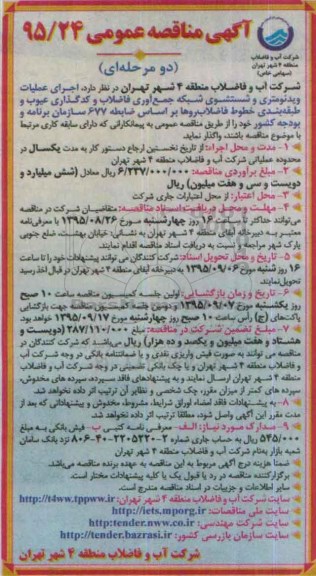 آگهی مناقصه عمومی ۹۵/۲۴
(دو مرحله‌ای)
شرکت آب و فاضلاب
منطقه ۴ شهر تهران
(سهامی خاص)
شرکت آب و فاضلاب منطقه ۴ شهر تهران در نظر دارد، اجرای عملیات
ویدئومتری و شستشوی شبکه جمع‌آوری فاضلاب و کدگذاری عیوب و
طبقه‌بندی خطوط فاضلاب‌روها بر اساس ضابطه ۶۷۷ سازمان برنامه و
بودجه کشور خود را از طریق مناقصه عمومی به پیمانکارانی که دارای سابقه کاری مرتبط
با موضوع مناقصه باشند، واگذار نماید.
۱- مدت و محل اجراء: از تاریخ نخستین ارجاع دستور کار به مدت یکسال در
محدوده عملیاتی شرکت آب و فاضلاب منطقه ۴ شهر تهران
۲- مبلغ برآوردی مناقصه: ۶/۲۳۷/۰۰۰/۰۰۰ ریال معادل (شش میلیارد و
دویست و سی و هفت میلیون) ریال
۳- محل اعتبار: از محل اعتبارات جاری شرکت
۴- مهلت و محل دریافت اسناد مناقصه: متقاضیان شرکت در مناقصه
می‌توانند حداکثر تا ساعت ۱۶ روز چهارشنبه مورخ ۱۳۹۵/۰۸/۲۶ با معرفی‌نامه
معتبر به دبیرخانه آبفای منطقه ۴ شهر تهران به نشانی: خیابان بهشت، ضلع جنوبی
پارک شهر مراجعه و نسبت به دریافت اسناد مناقصه اقدام نمایند.
۵- تاریخ و محل تحویل اسناد: شرکت کنندگان می توانند پیشنهادات خود را تا ساعت
۱۶ روز شنبه مورخ ۱۳۹۵/۰۹/۰۶ به دبیرخانه آبفای منطقه ۴ شهر تهران در قبال اخذ رسید
تحویل نمایند.
۶- تاریخ و زمان بازگشایی: اولین جلسه کمیسیون مناقصه ساعت ۱۰ صبح
روز یکشنبه مورخ ۱۳۹۵/۰۹/۰۷ و دومین جلسه کمیسیون مناقصه جهت بازگشایی
پاکت‌های (ج) راس ساعت ۱۰ صبح روز چهارشنبه مورخ ۱۳۹۵/۰۹/۱۷ خواهد بود.
۷- مبلغ تضمین شرکت در مناقصه: مبلغ ۲۸۷/۱۱۰/۰۰۰ (دویست و
هشتاد و هفت میلیون و یکصد و ده هزار) ریال می‌باشد که شرکت کنندگان در
مناقصه می توانند به صورت فیش واریزی نقدی و یا ضمانتنامه بانکی در وجه شرکت آب
و فاضلاب منطقه ۴ شهر تهران و یا چک بانکی تضمینی در وجه شرکت آب و فاضلاب
منطقه ۴ شهر تهران ارسال نمایند و به پیشنهادهای فاقد سپرده، سپرده های مخدوش،
سپرده های کمتر از میزان مقرر، چک شخصی و نظایر آن ترتیب اثر داده نخواهد شد.
۸- به پیشنهادات فاقد امضاء اوراق شرایط، مشروط، مخدوش و پیشنهاداتی که بعد از
مدت مقرر این آگهی واصل شود، مطلقا ترتیب اثر داده نخواهد شد.
۹- مدارک مورد نیاز: الف- معرفی نامه کتبی ب- فیش بانکی به مبلغ
۵۴۵/۰۰۰ ریال به حساب جاری شماره ۲-۲۲۰۵۲۲۰-۴۰-۸۰۶ نزد بانک سامان
شعبه بازار به‌نام شرکت آب و فاضلاب منطقه ۴ شهر تهران
ضمنا هزینه درج آگهی مربوط به این مناقصه به عهده برنده مناقصه می‌باشد.
برگزارکننده مناقصه در رد یا قبول یک یا کلیه پیشنهادات مختار است.
سایر اطلاعات و جزییات در اسناد مناقصه مندرج است.
سایت شرکت آب و فاضلاب منطقه ۴ شهر تهران: http://t4ww.tppww.ir
سایت ملی مناقصات: http://iets.mporg.ir
سایت شرکت مهندسی: http:tender.nww.co.ir
سایت سازمان بازرسی کشور: http://tender.bazrasi.ir
شرکت آب و فاضلاب منطقه ۴ شهر تهران